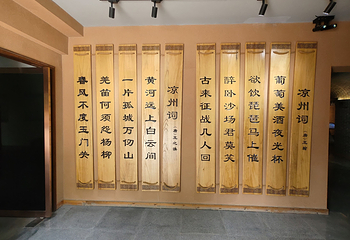 凉州词
葡萄美酒夜光杯
欲饮琵琶马上催
醉卧沙场君莫笑
古来征战几人回
凉州词
黄河远上白云间
一片孤城万仞山
羌笛何须怨杨柳
春风不度玉门关